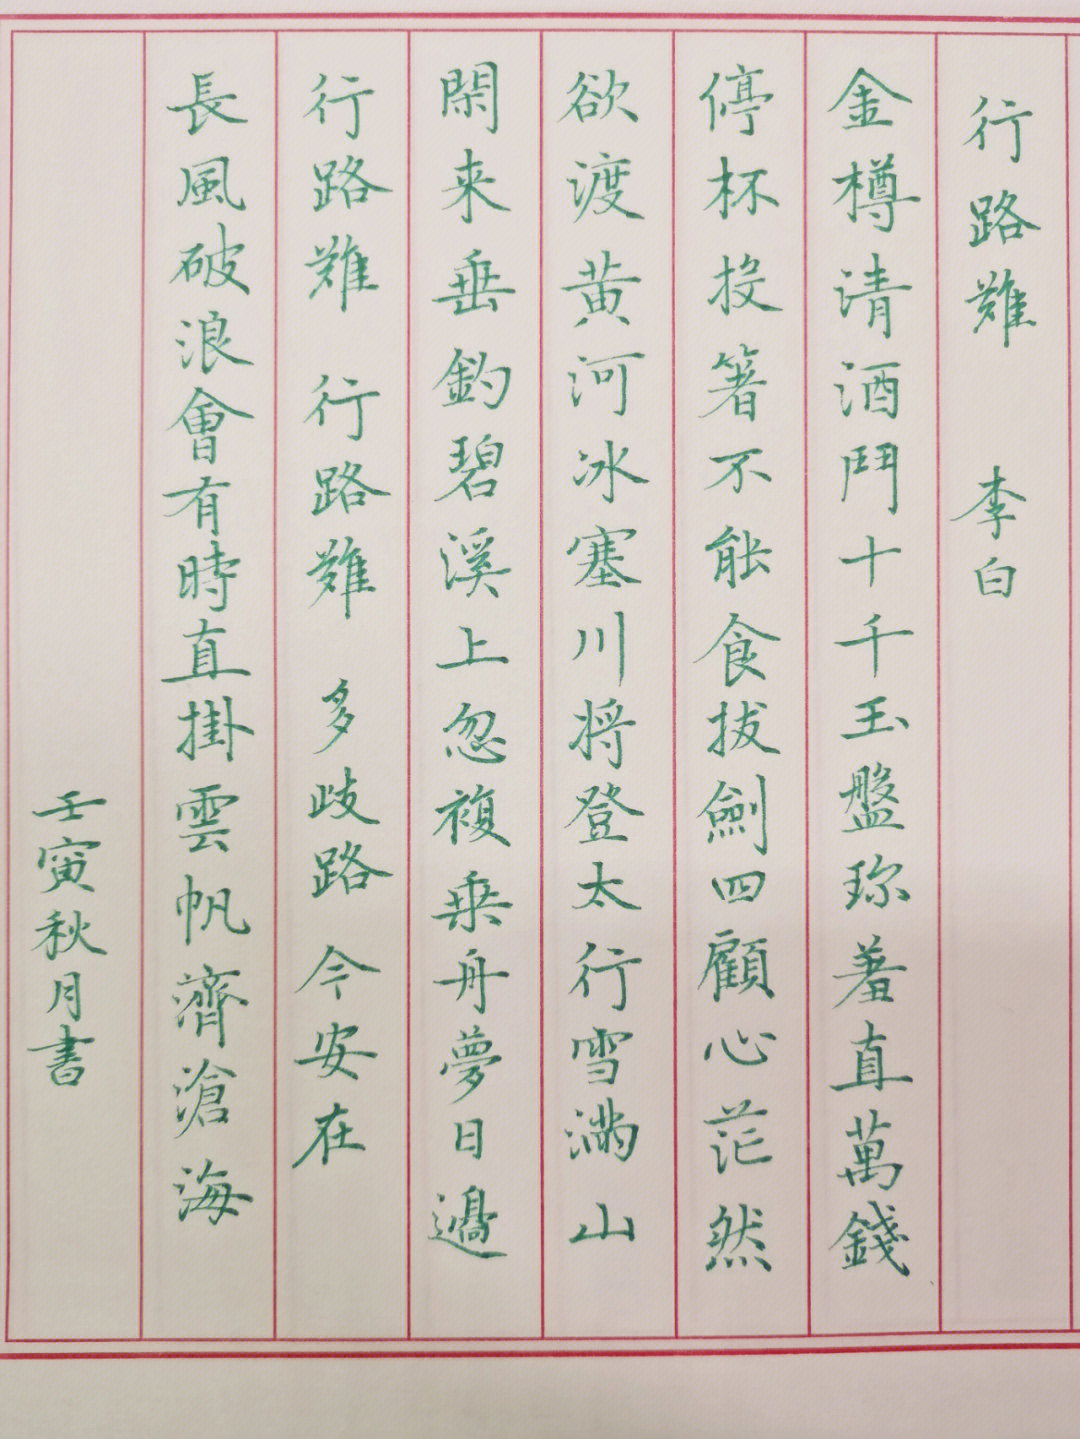 行路難 李白
金樽清酒鬥十千玉盤珎羞直萬錢
停杯投箸不能食拔劍四顧心茫然
欲渡黄河冰塞川将登太行雪满山
閑来垂釣碧溪上忽複乗舟夢日邊
行路難 行路難 多歧路 今安在
長風破浪會有時直掛雲帆濟滄海
壬寅秋月書